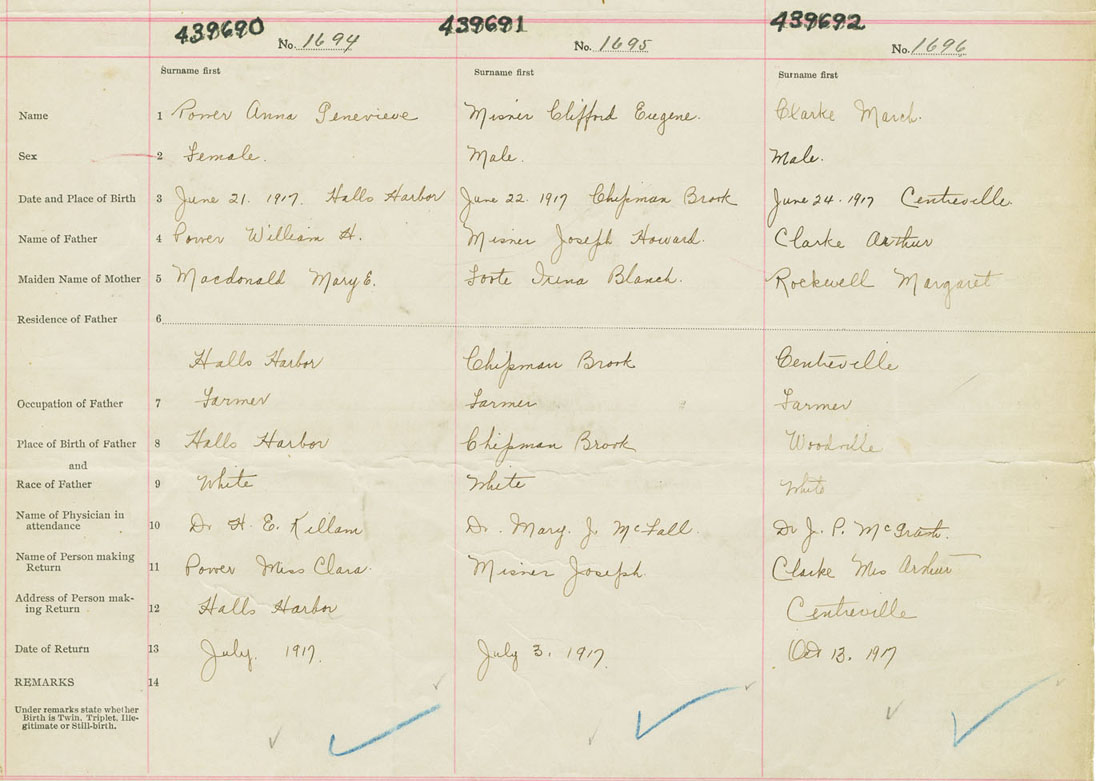 439690 439691 439692
No. 1694 No. 1695 No. 1696
Surname first Surname first Surname first
Name 1 Power Anna Genevieve Misner Clifford Eugene. Clarke March.
Sex 2 Female. Male. Male.
Date and Place of Birth 3 June 21. 1917. Halls Harbor June 22. 1917 Chipman Brook June 24. 1917 Centreville.
Name of Father 4 Power William H. Misner Joseph Howard. Clarke Arthur
Maiden Name of Mother 5 Macdonald Mary E. Foote Irena Blanch. Rockwell Margaret
Residence of Father 6
Halls Harbor Chipman Brook Centreville
Occupation of Father 7 Farmer Farmer Farmer
Place of Birth of Father 8 Halls Harbor Chipman Brook Woodville
and
Race of Father 9 White White White
Name of Physician in
attendance 10 Dr H. E. Killam Dr. Mary. J. McFall. Dr J. P. McGrath.
Name of Person making
Return 11 Power Miss Clara. Misner Joseph. Clarke Mrs Arthur
Address of Person mak-
ing Return 12 Halls Harbor Centreville
Date of Return 13 July. 1917. July 3. 1917. Oct 13. 1917
REMARKS 14
Under remarks state whether
Birth is Twin. Triplet. Ille-
gitimate or Still-birth.